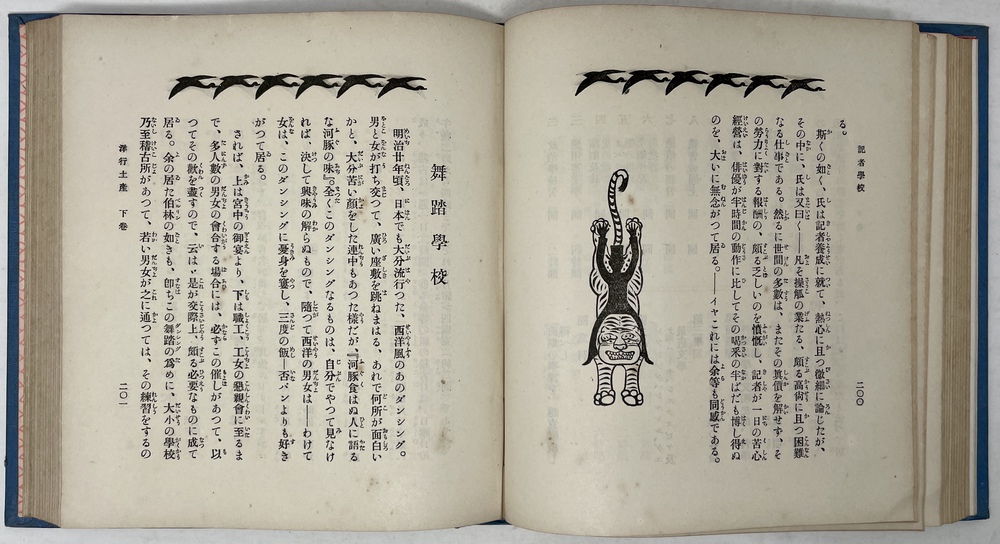 記者學校
二〇〇
る。
斯くの如く、氏は記者養成に就て、熱心に且つ微細に論じたが、
その中に、氏は又曰く――凡そ操觚の業たる、頗る高尚に且つ困難
なる仕事である。然るに世間の多數は、またその眞價を解せず、そ
の勞力に對する報酬の、頗る乏しいのを憤慨し、記者が一日の苦心
經營は、俳優が半時間の動作に比してその喝釆の半ばだも博し得ぬ
のを、大いに無念がつて居る。――イヤこれには余等も同感である。
舞踏學校
明治廿年頃、日本でも大分流行つた、西洋風のあのダンシング。
男と女が打ち交つて、廣い座敷を跳ねまはる、あれで何所が面白い
かと、大分苦い顔をした連中もあつた樣だが、『河豚食はぬ人に語る
な河豚の味』。全くこのダンシングなるものは、自分でやつて見なけ
れば、決して興味の解らぬもので、隨つて西洋の男女は――わけて
女は、このダンシングに憂身を窶し、三度の飯――否パンよりも好き
がつて居る。
されば、上は宮中の御宴より、下は職工、工女の懇親會に至るま
で、多人數の男女の會合する場合には、必ずこの催しがあつて、以
つてその歡を盡すので、云はゞ是が交際上、頗る必要なものに成て
居る。余の居た伯林の如きも、卽ちこの舞踏の爲めに、大小の學校
乃至稽古所があつて、若い男女が之に通つては、その練習をするの
洋行土産 下卷
二〇一